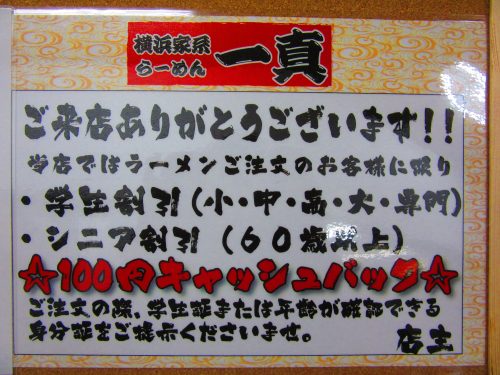 横浜家系
らーめん 一真
ご来店ありがとうございます!!
学店ではラーメンご注文のお客様に限り
・学生割引(小・中・高・大・専門)
・シニア割引(60歳以上)
☆100円キャッシュバック☆
ご注文の際,学生証または年齢が確認できる
身分証をご提示くださいませ。
店主